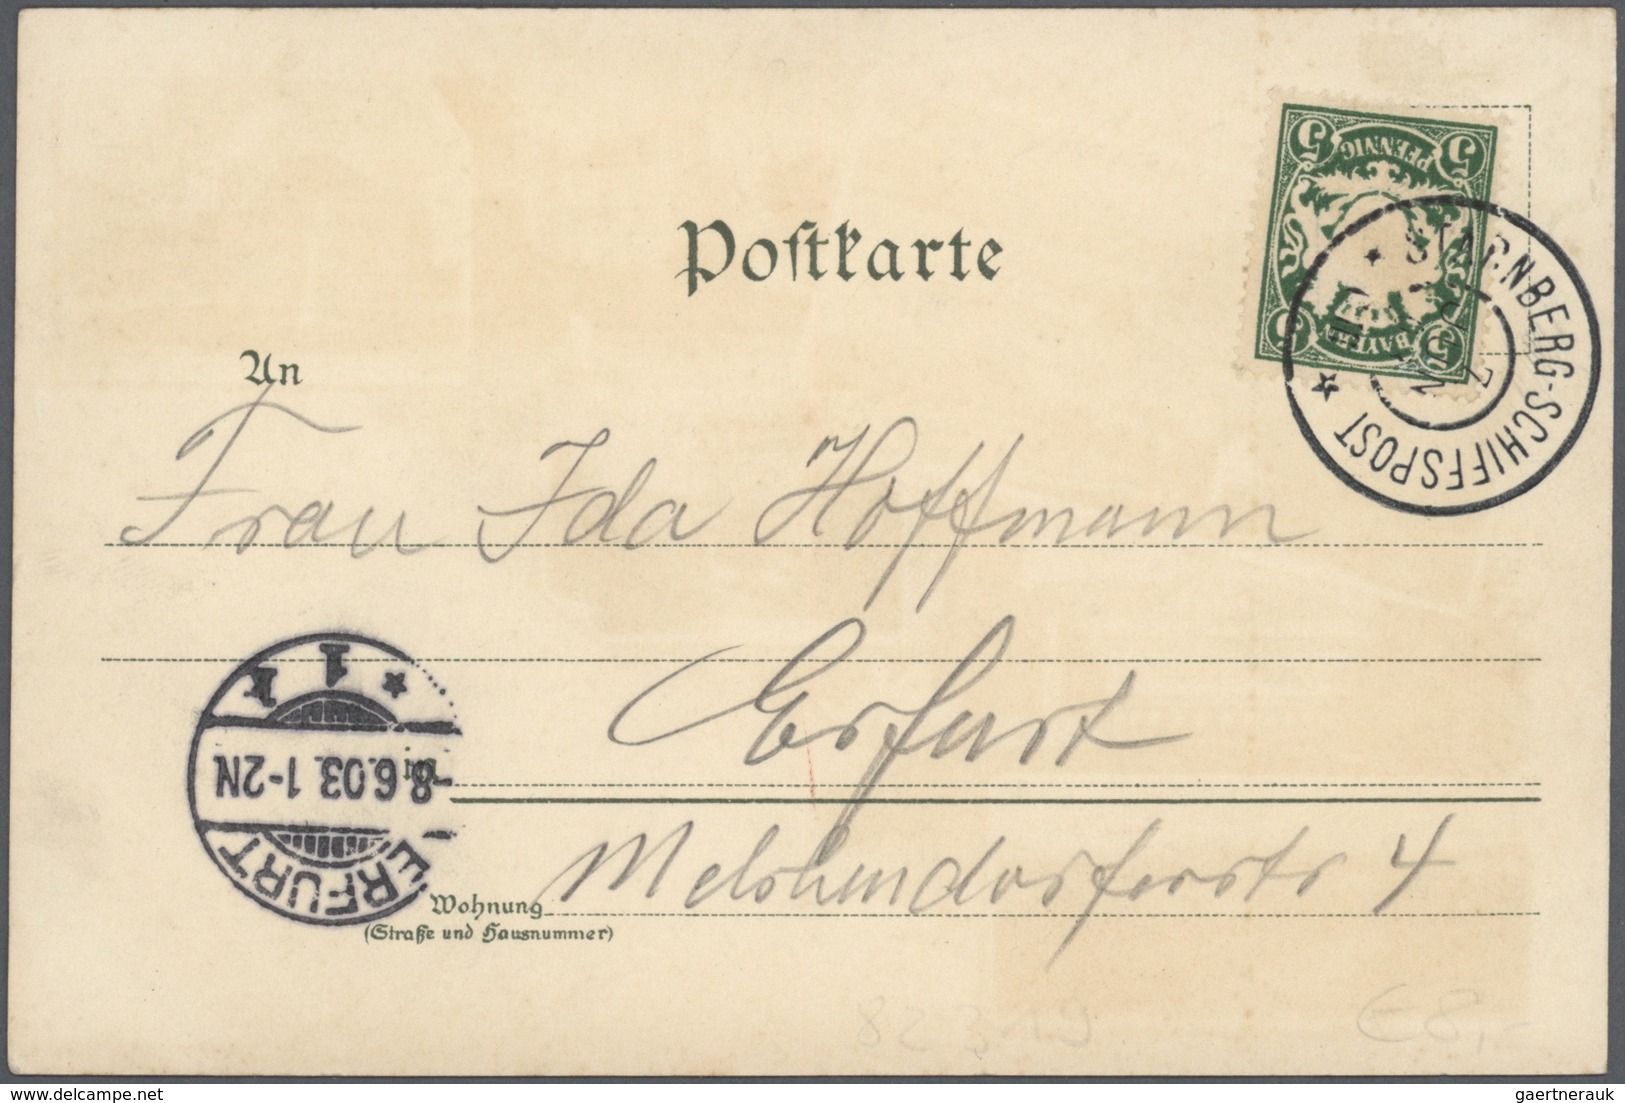 Postkarte
5 5
PFENNIG
BAYERN
5 5
STARNBERG-SCHIFFSPOST
7 JUN
An
Frau Ida Hoffmann
Erfurt
in
ERFURT
8.6.03. 1-2N
* 1 k
Melchendorferstr 4
Wohnung
(Straße und Hausnummer)
82319
€8,-
delcampe.net
gaertnerauk